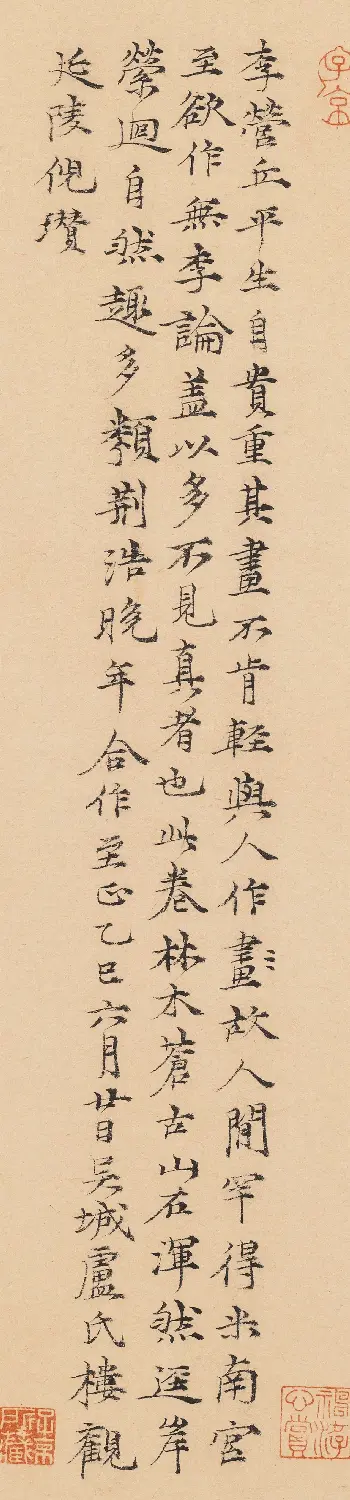 子京
李營丘平生自貴重其畫不肯輕與人作畫故人閒罕得米南宮
至欲作無李論蓋以多不見真者也此卷林木蒼古山石渾然逕岸
縈迴自然趣多類荆浩晚年合作至正乙巳六月廿日吳城盧氏樓觀
延陵倪瓚
神游心賞